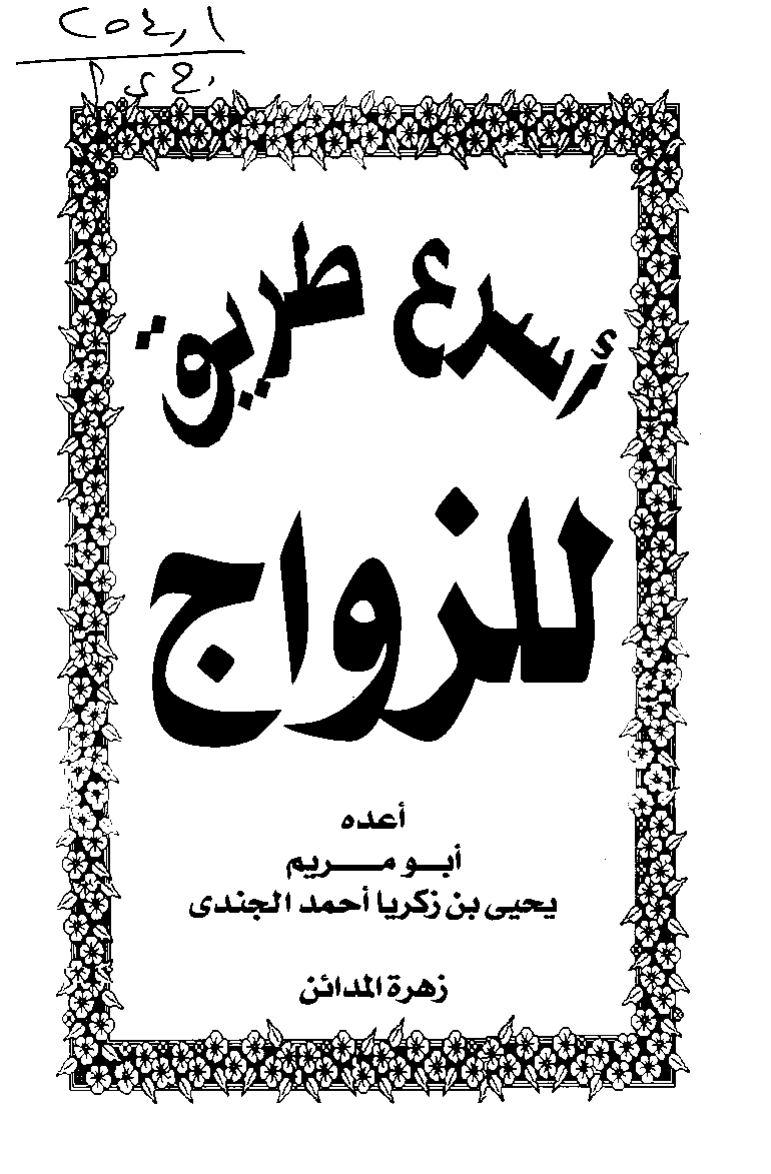 ٢٥٤,١
أسرع طريق
للزواج
أعده
أبو مريم
يحيى بن زكريا أحمد الجندى
زهرة المدائن